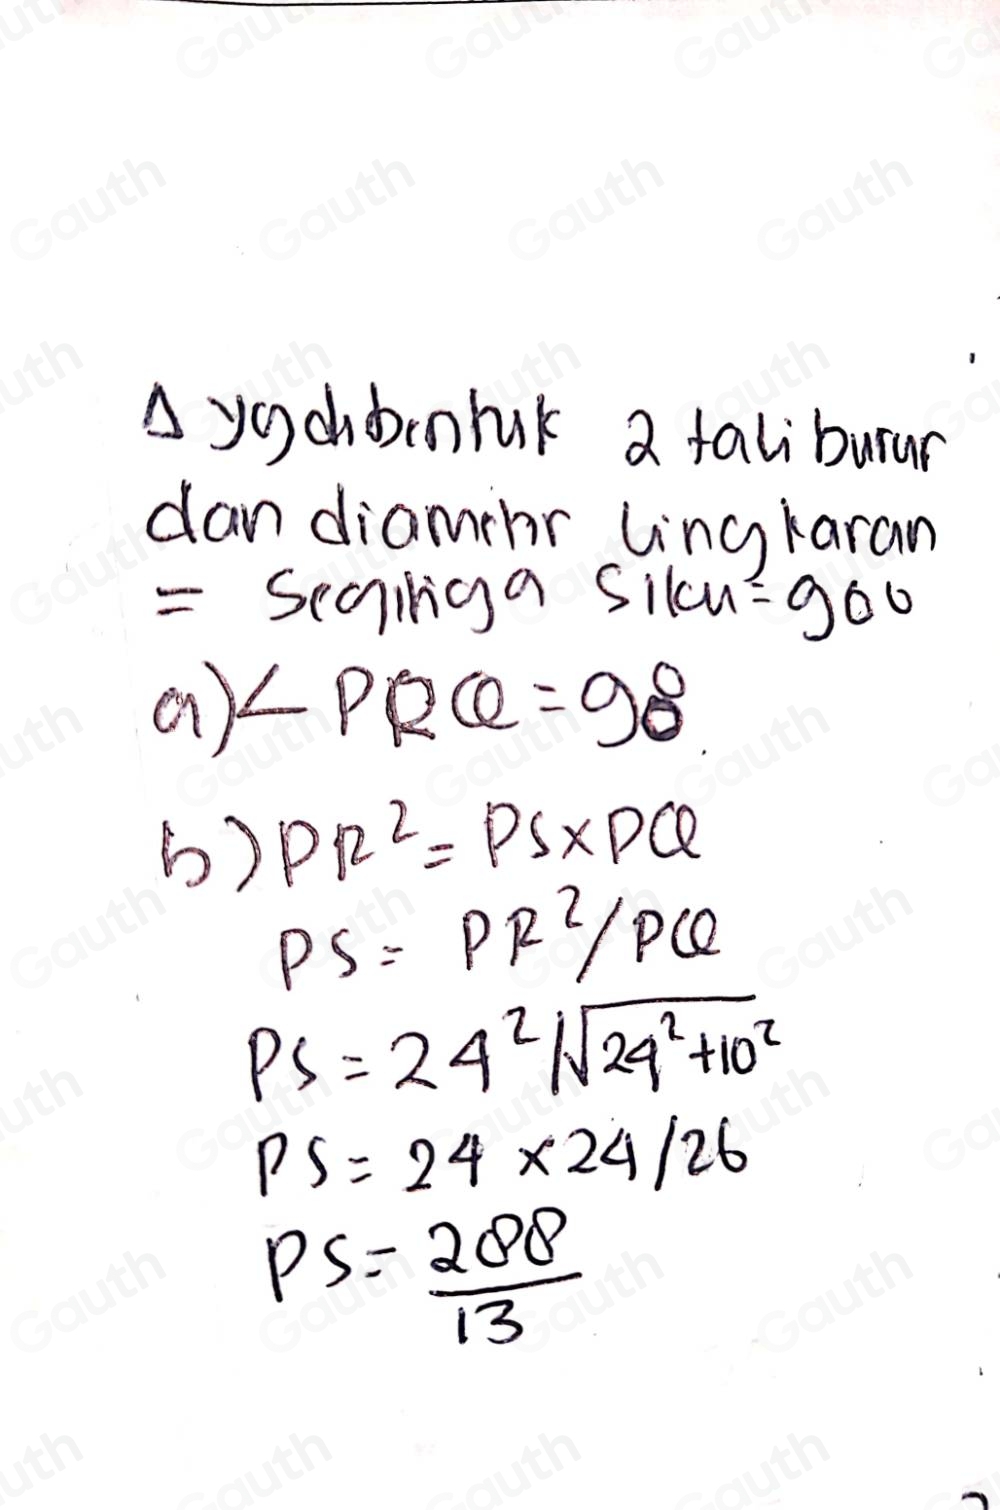 Δ yg dibentuk 2 tali busur
dan diameter lingkaran
= Segitiga Siku = 90°
a) ∠ PRQ = 90°
b) PR² = PS x PQ
PS = PR² / PQ
PS = 24² / √24² + 10²
PS = 24 x 24 / 26
PS = 288
13